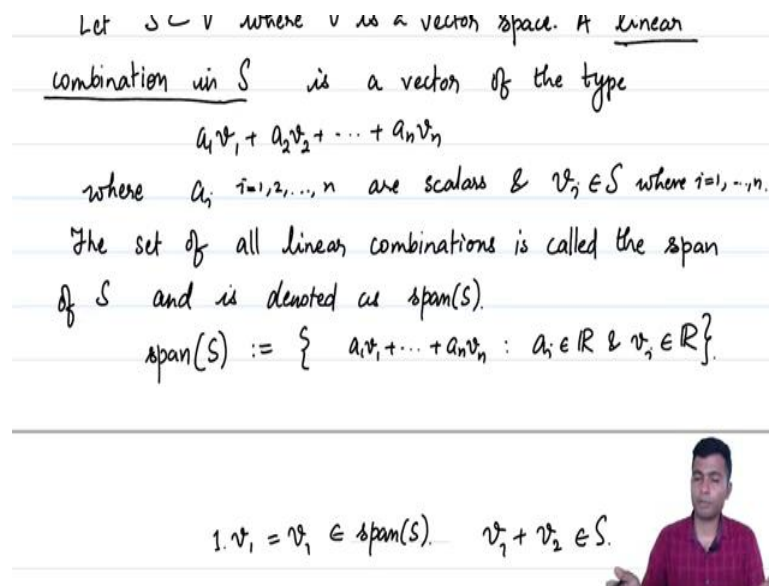 Let S ⊂ V where V is a vector space. A linear
combination in S is a vector of the type
a₁v₁ + a₂v₂ + ... + aₙvₙ
where aᵢ i=1,2,...,n are scalars & vᵢ ∈ S where i=1,...,n.
The set of all linear combinations is called the span
of S and is denoted as span(S).
span(S) := { a₁v₁ + ... + aₙvₙ : aᵢ ∈ ℝ & vᵢ ∈ ℝ}.
1.v₁ = v₁ ∈ span(S). v₁ + v₂ ∈ S.